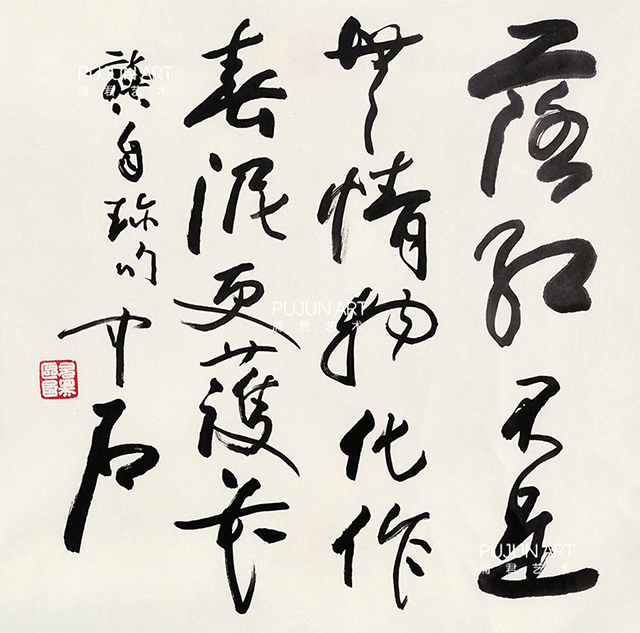 落紅不是
無情物化作
春泥更護花
龔自珍句
中石
PUJUN ART
浦君艺术
PUJUN ART
浦君艺术
PUJUN ART
浦君艺术